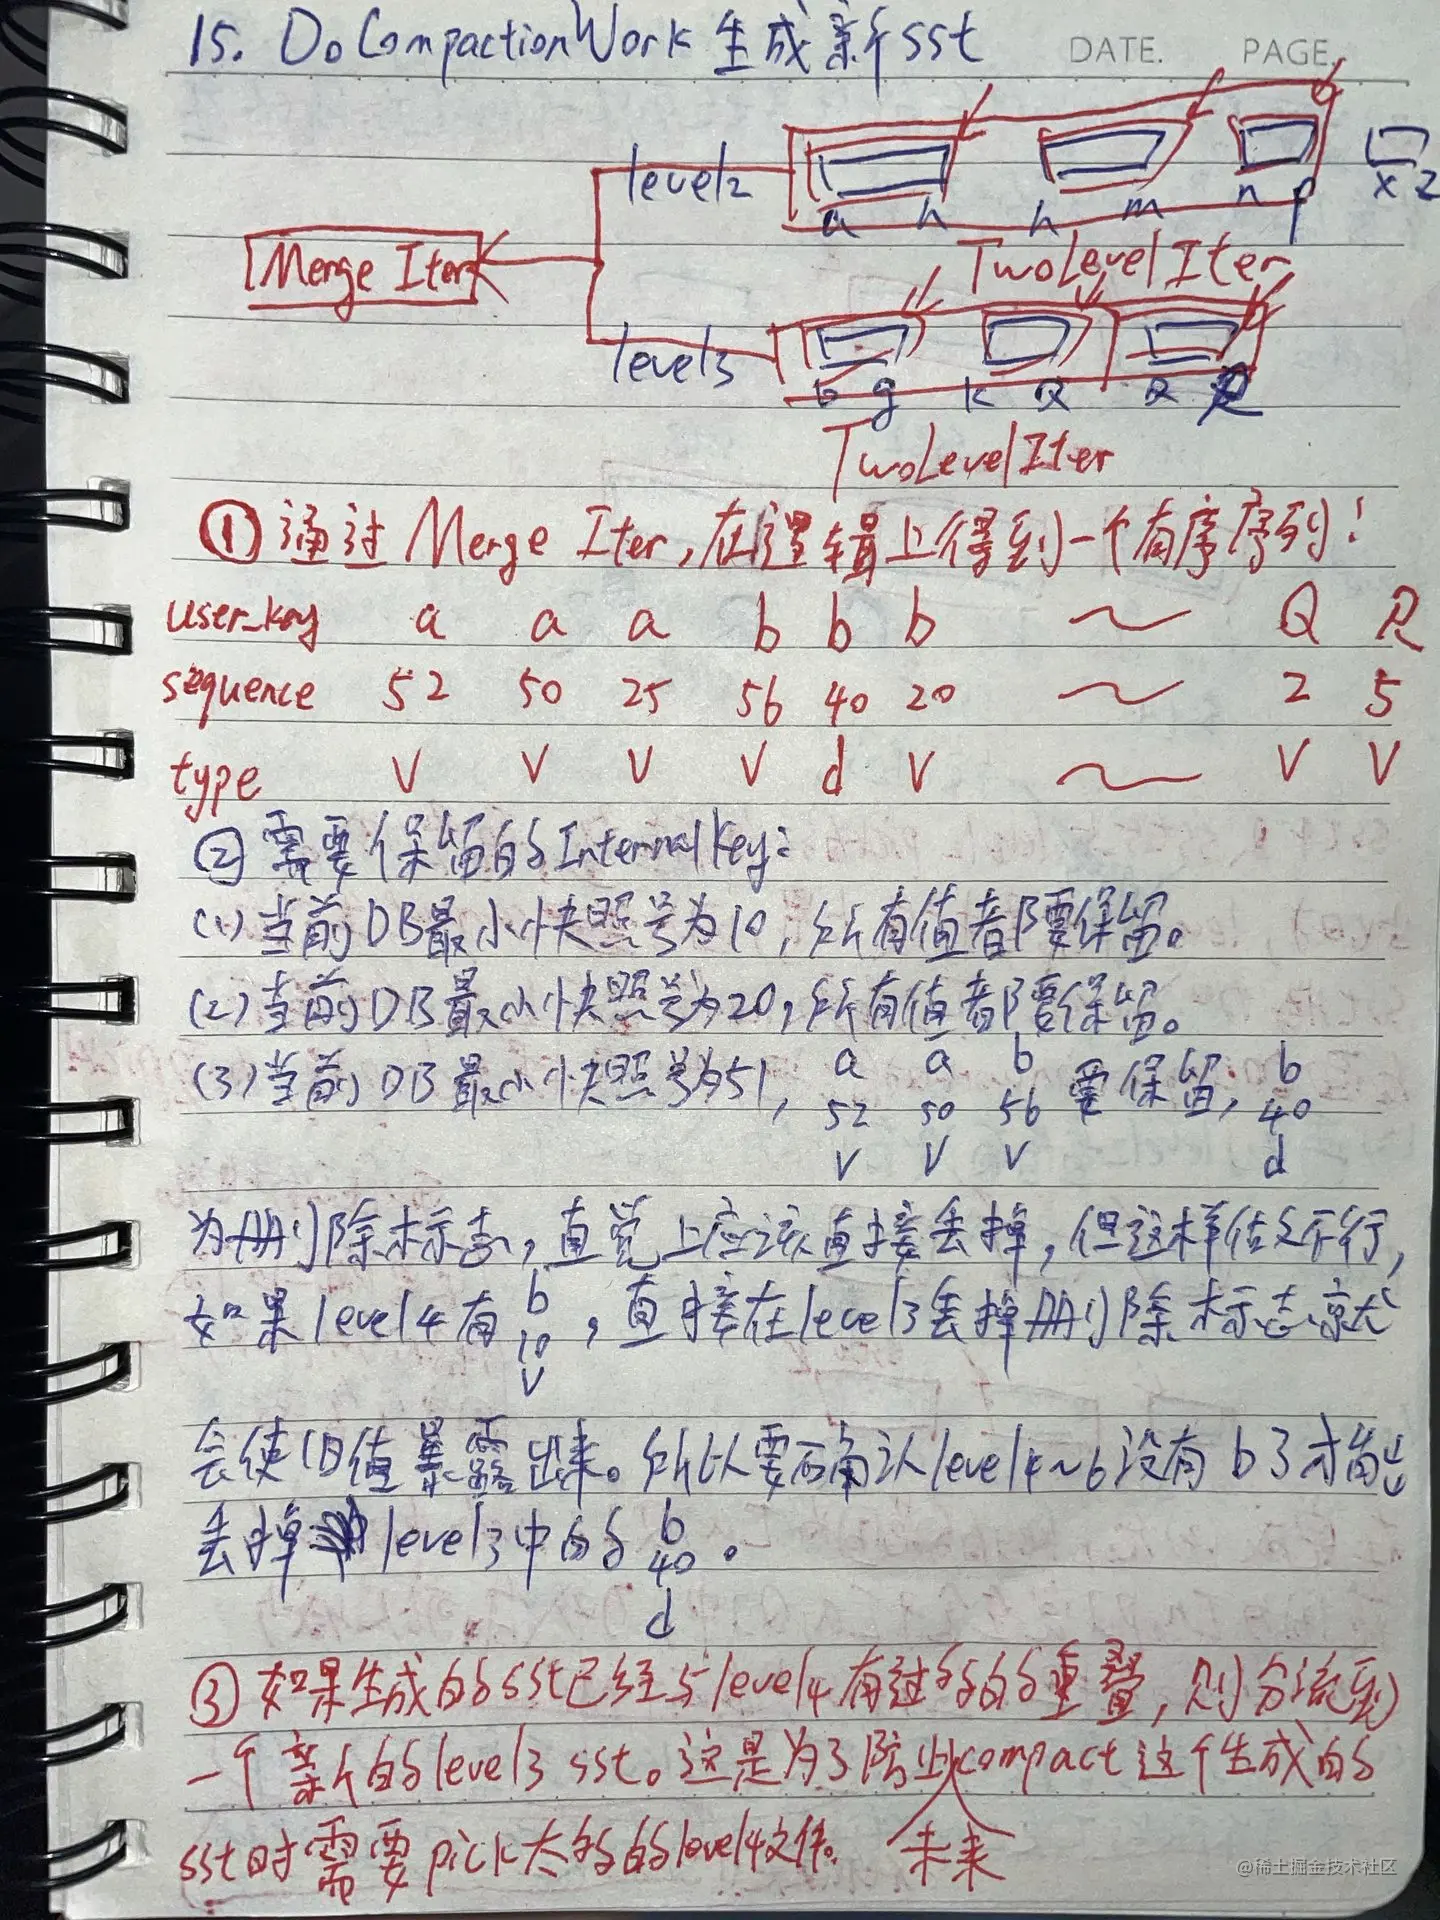 15. DoCompactionWork 生成新sst
DATE. PAGE.
level2
a h h m n p x z
Merge Iter
TwoLevelIter
level3
b g k Q Q R
TwoLevelIter
① 通过 Merge Iter,在逻辑上得到一个有序序列:
user_key a a a b b b ~ Q R
sequence 52 50 25 56 40 20 ~ 2 5
type V V V V d V ~ V V
② 需要保留的InternalKey:
(1)当前DB最小快照号为10,所有值都要保留。
(2)当前DB最小快照号为20,所有值都要保留。
(3)当前DB最小快照号为51, a a b 要保留, b
52 50 56 40
V V V d
为删除标志,直觉上应该直接丢掉,但这样估计不行,
如果level4有 b ,直接在level3丢掉删除标志就
10
V
会使旧值暴露出来。所以要确认level4~6没有b了才能
丢掉level3中的 b 。
40
d
③ 如果生成的sst已经与level4有过多的重叠,则分流到
一个新的level3 sst。这是为了防止未来compact这个生成的
sst时需要pick太多的level4文件。
@稀土掘金技术社区